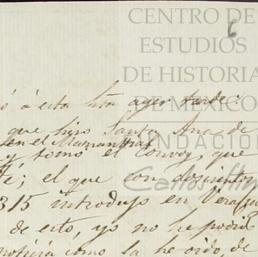 CENTRO DE
ESTUDIOS
DE HISTORIA
DE MÉXICO
FUNDACIÓN
6
ó á esta hora ayer tarde:
que hizo Santa Ana de
en el Manantial
y tomó el convoy que
te; el que con doscientos
315 introdujo en Verac
de esto, yo no he podi
noticia como la he oido, de